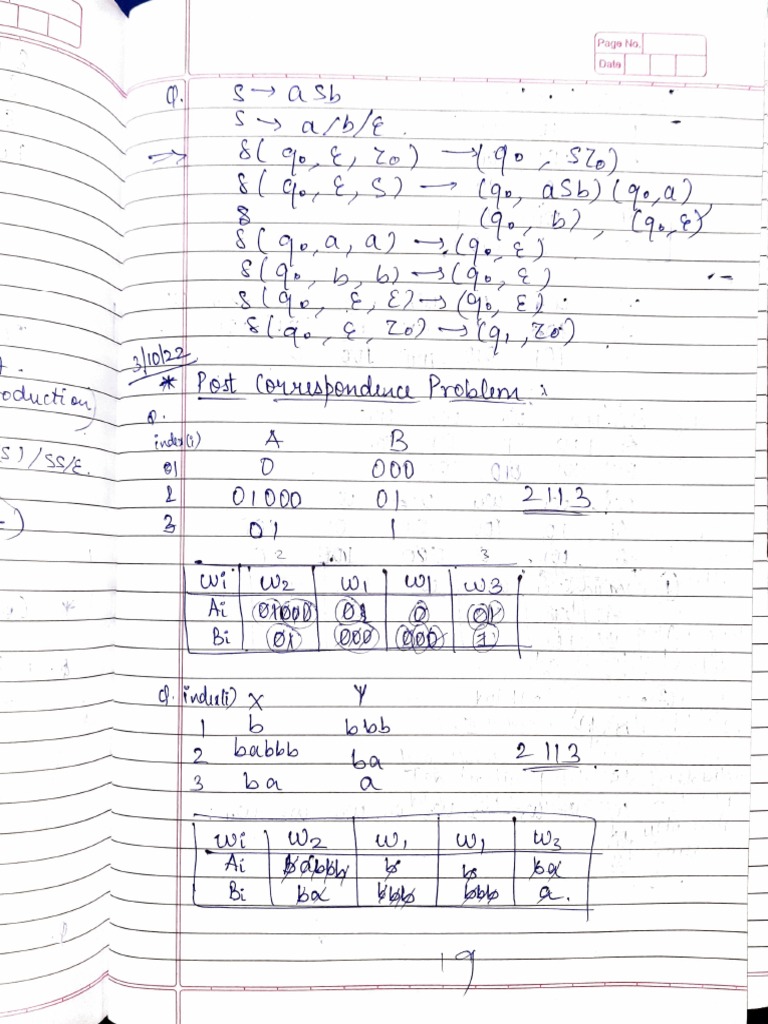 Page No.
Date
Q. S → aSb
S → a/b/ε
⇒ δ(q₀, ε, z₀) → (q₀, Sz₀)
δ(q₀, ε, S) → (q₀, aSb) (q₀, a),
δ (q₀, b), (q₀, ε)
δ(q₀, a, a) → (q₀, ε)
δ(q₀, b, b) → (q₀, ε)
δ(q₀, ε, ε) → (q₀, ε)
δ(q₀, ε, z₀) → (q₁, z₀)
3/10/22
* Post Correspondence Problem :
oduction)
Q.
index(i) A B
S) / SS/ε.
01 0 000
2 01000 01 2113
3 01 1
2 3
Wi W2 W1 W1 W3
Ai 01000 0 0 01
Bi 01 000 000 1
Q. index(i) X Y
1 b bbb
2 babbb ba 2113
3 ba a
Wi W2 W1 W1 W3
Ai babbb b b ba
Bi ba bbb bbb a.
19